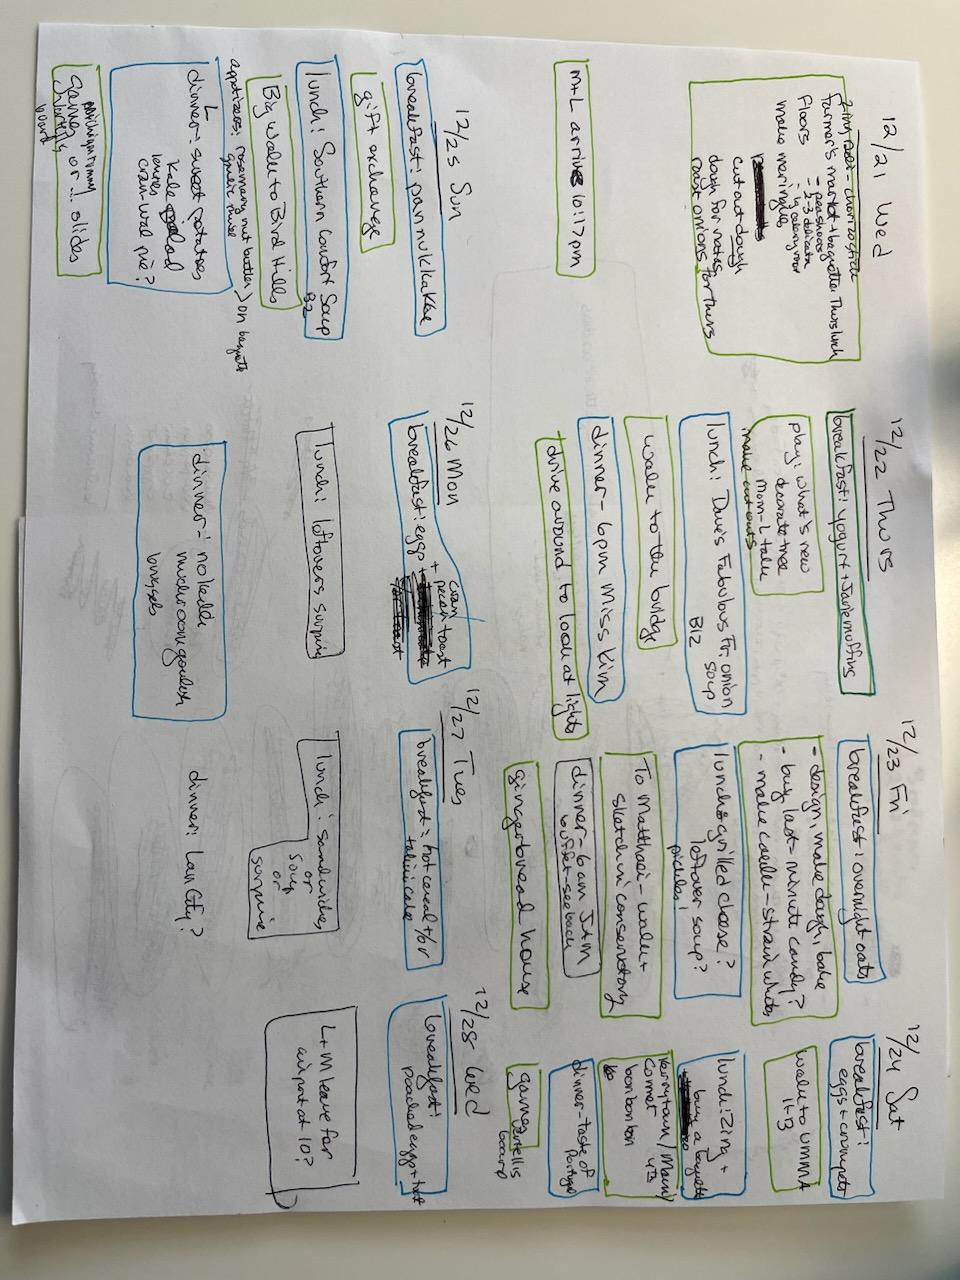 12/21 Wed
Farmer's market + baguette, Thurs lunch
- peashoots
- 2-3 delicata
floors
make meringues
cut out dough
dough for notes
roast onions for Thurs
M+L arrives 10:17pm
12/22 Thurs
breakfast: yogurt + Jane muffins
play: what's new
decorate tree
Mom-L talk
make cut outs
lunch: Dave's Fabulous Fr. onion
soup
B12
walk to the bridge
dinner - 6pm Miss Kim
drive around to look at lights
12/23 Fri
breakfast: overnight oats
- design, make dough, bake
- buy last-minute candy?
- make caulk - strain whites
lunch: grilled cheese?
leftover soup?
pickles!
To Matthaei - walk +
sketch in conservatory
dinner - 6am J+M
buffet - see back
gingerbread house
12/24 Sat
breakfast:
eggs + crumpets
walk to UMMA
11-3
lunch: Zing +
buy a baguette
Kerrytown/Main/
Comet
bon bon bon
dinner - taste of
Portugal
games
trellis
board
12/25 Sun
breakfast: pannukakku
gift exchange
lunch: Southern Comfort Soup
B2
Big walk to Bird Hills
appetizers: rosemary nut butter > on baguette
garlic
L
dinner: sweet potatoes
kale salad
cran-wal pie?
games or... slides
board
12/26 Mon
breakfast: eggs
+ cran
pecan toast
lunch: leftovers, surprise
dinner - nokedli
mushroom goulash
brussels
12/27 Tues
breakfast: hot cereal +/or
tahini cake
lunch: sandwiches
or
soup
or
surprise
dinner: Lan City?
12/28 Wed
breakfast:
poached egg + toast
L+M leave for
airport at 10?